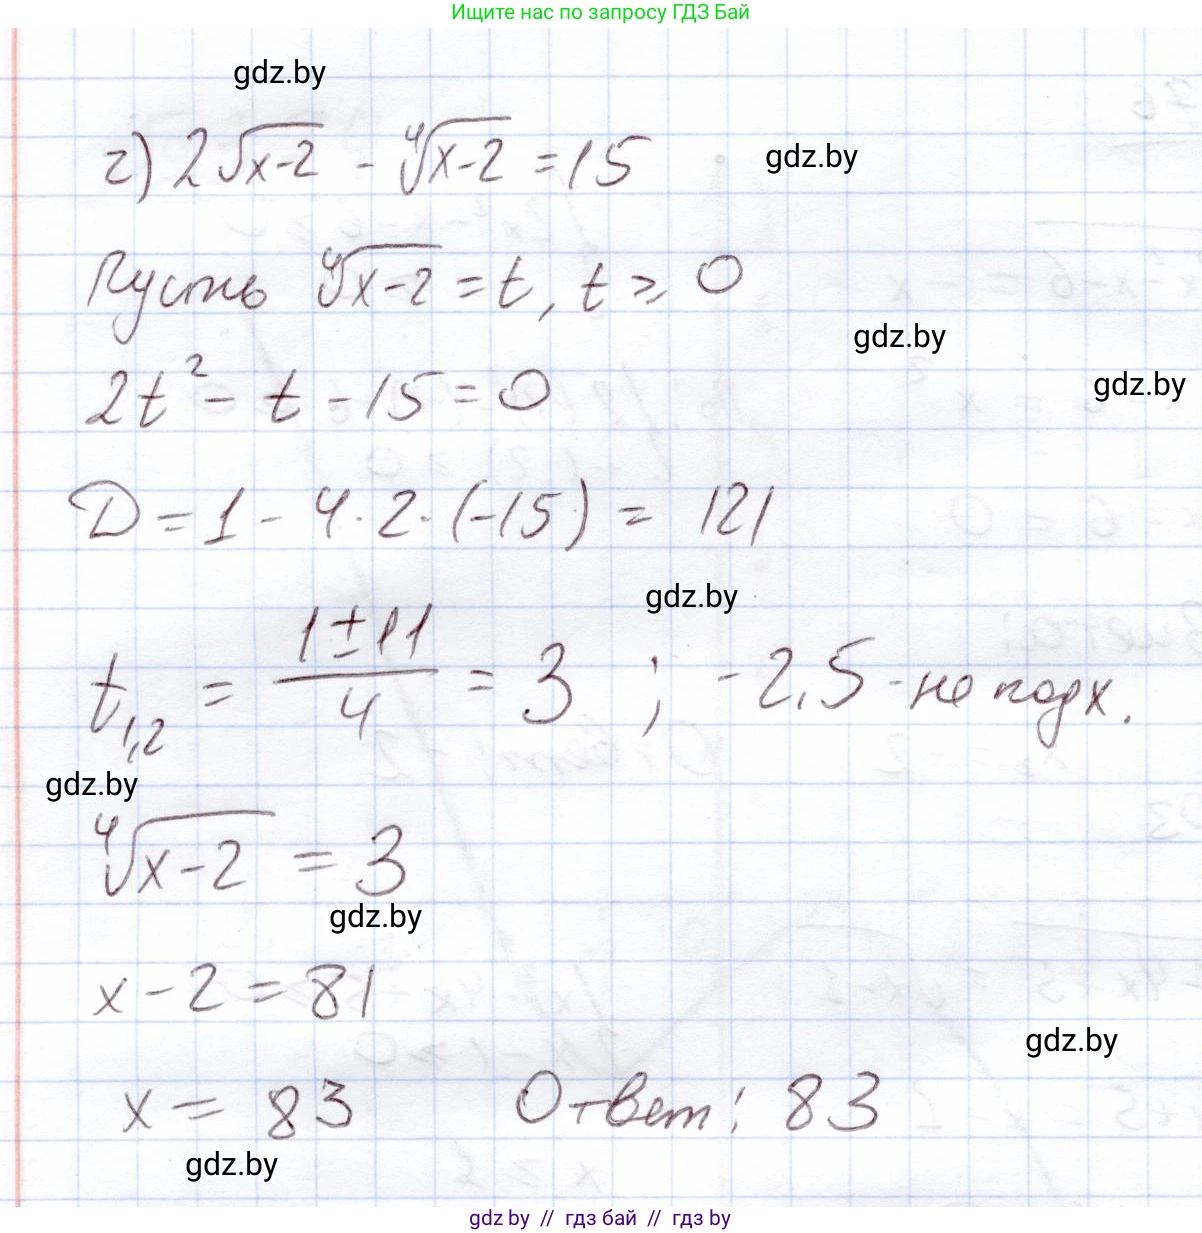 Ищите нас по запросу ГДЗ Бай
gdz.by
г) 2√(x-2) - ∜(x-2) = 15
gdz.by
Пусть ∜(x-2) = t, t ≥ 0
gdz.by
gdz.by
2t² - t - 15 = 0
D = 1 - 4·2·(-15) = 121
gdz.by
t₁,₂ = (1±11)/4 = 3 ; -2,5 - не подх.
gdz.by
∜(x-2) = 3
gdz.by
x - 2 = 81
gdz.by
x = 83 Ответ: 83
gdz.by
gdz by // гдз бай // гдз by